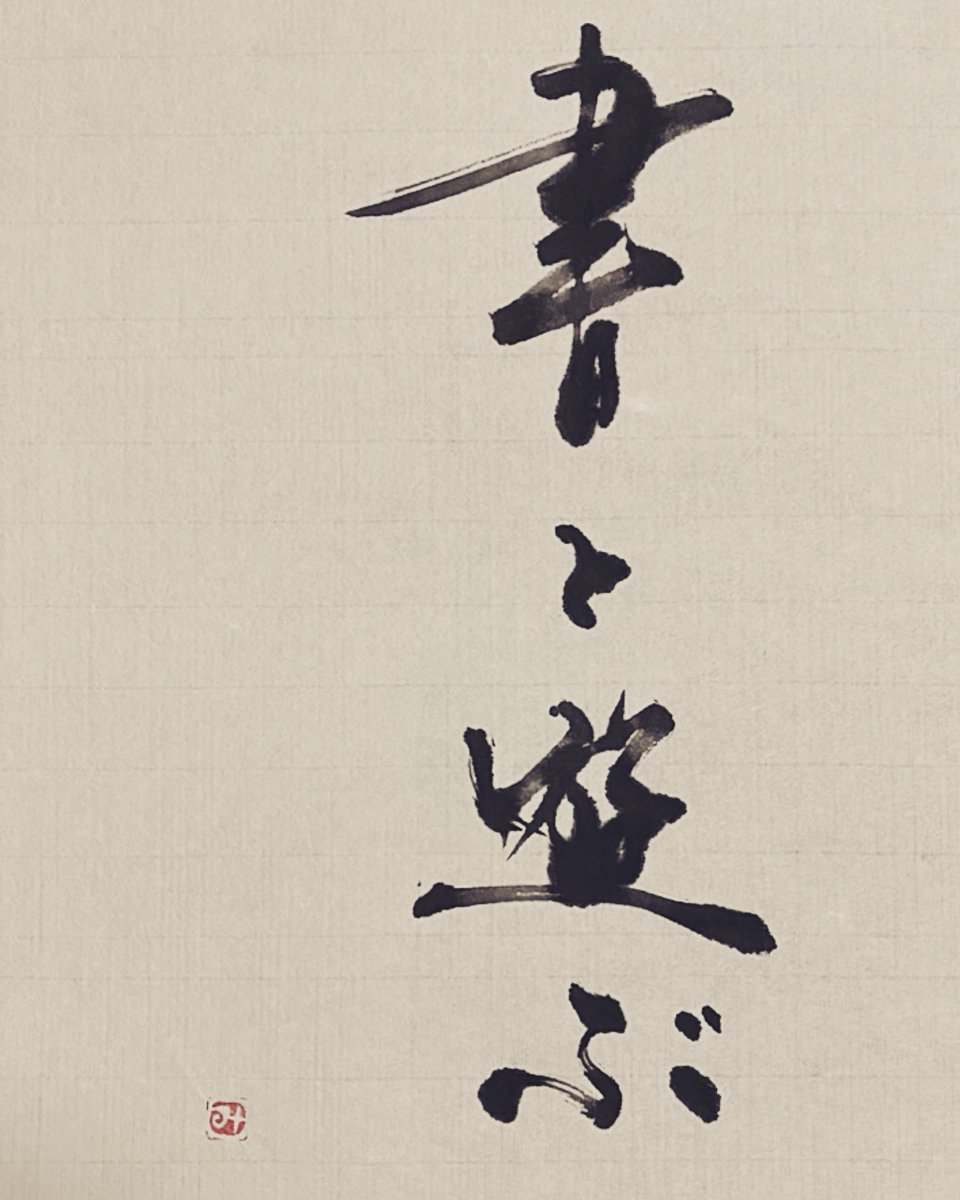 書と遊ぶ